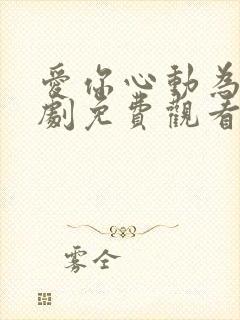 愛你心動為
劇免費觀看
雾全